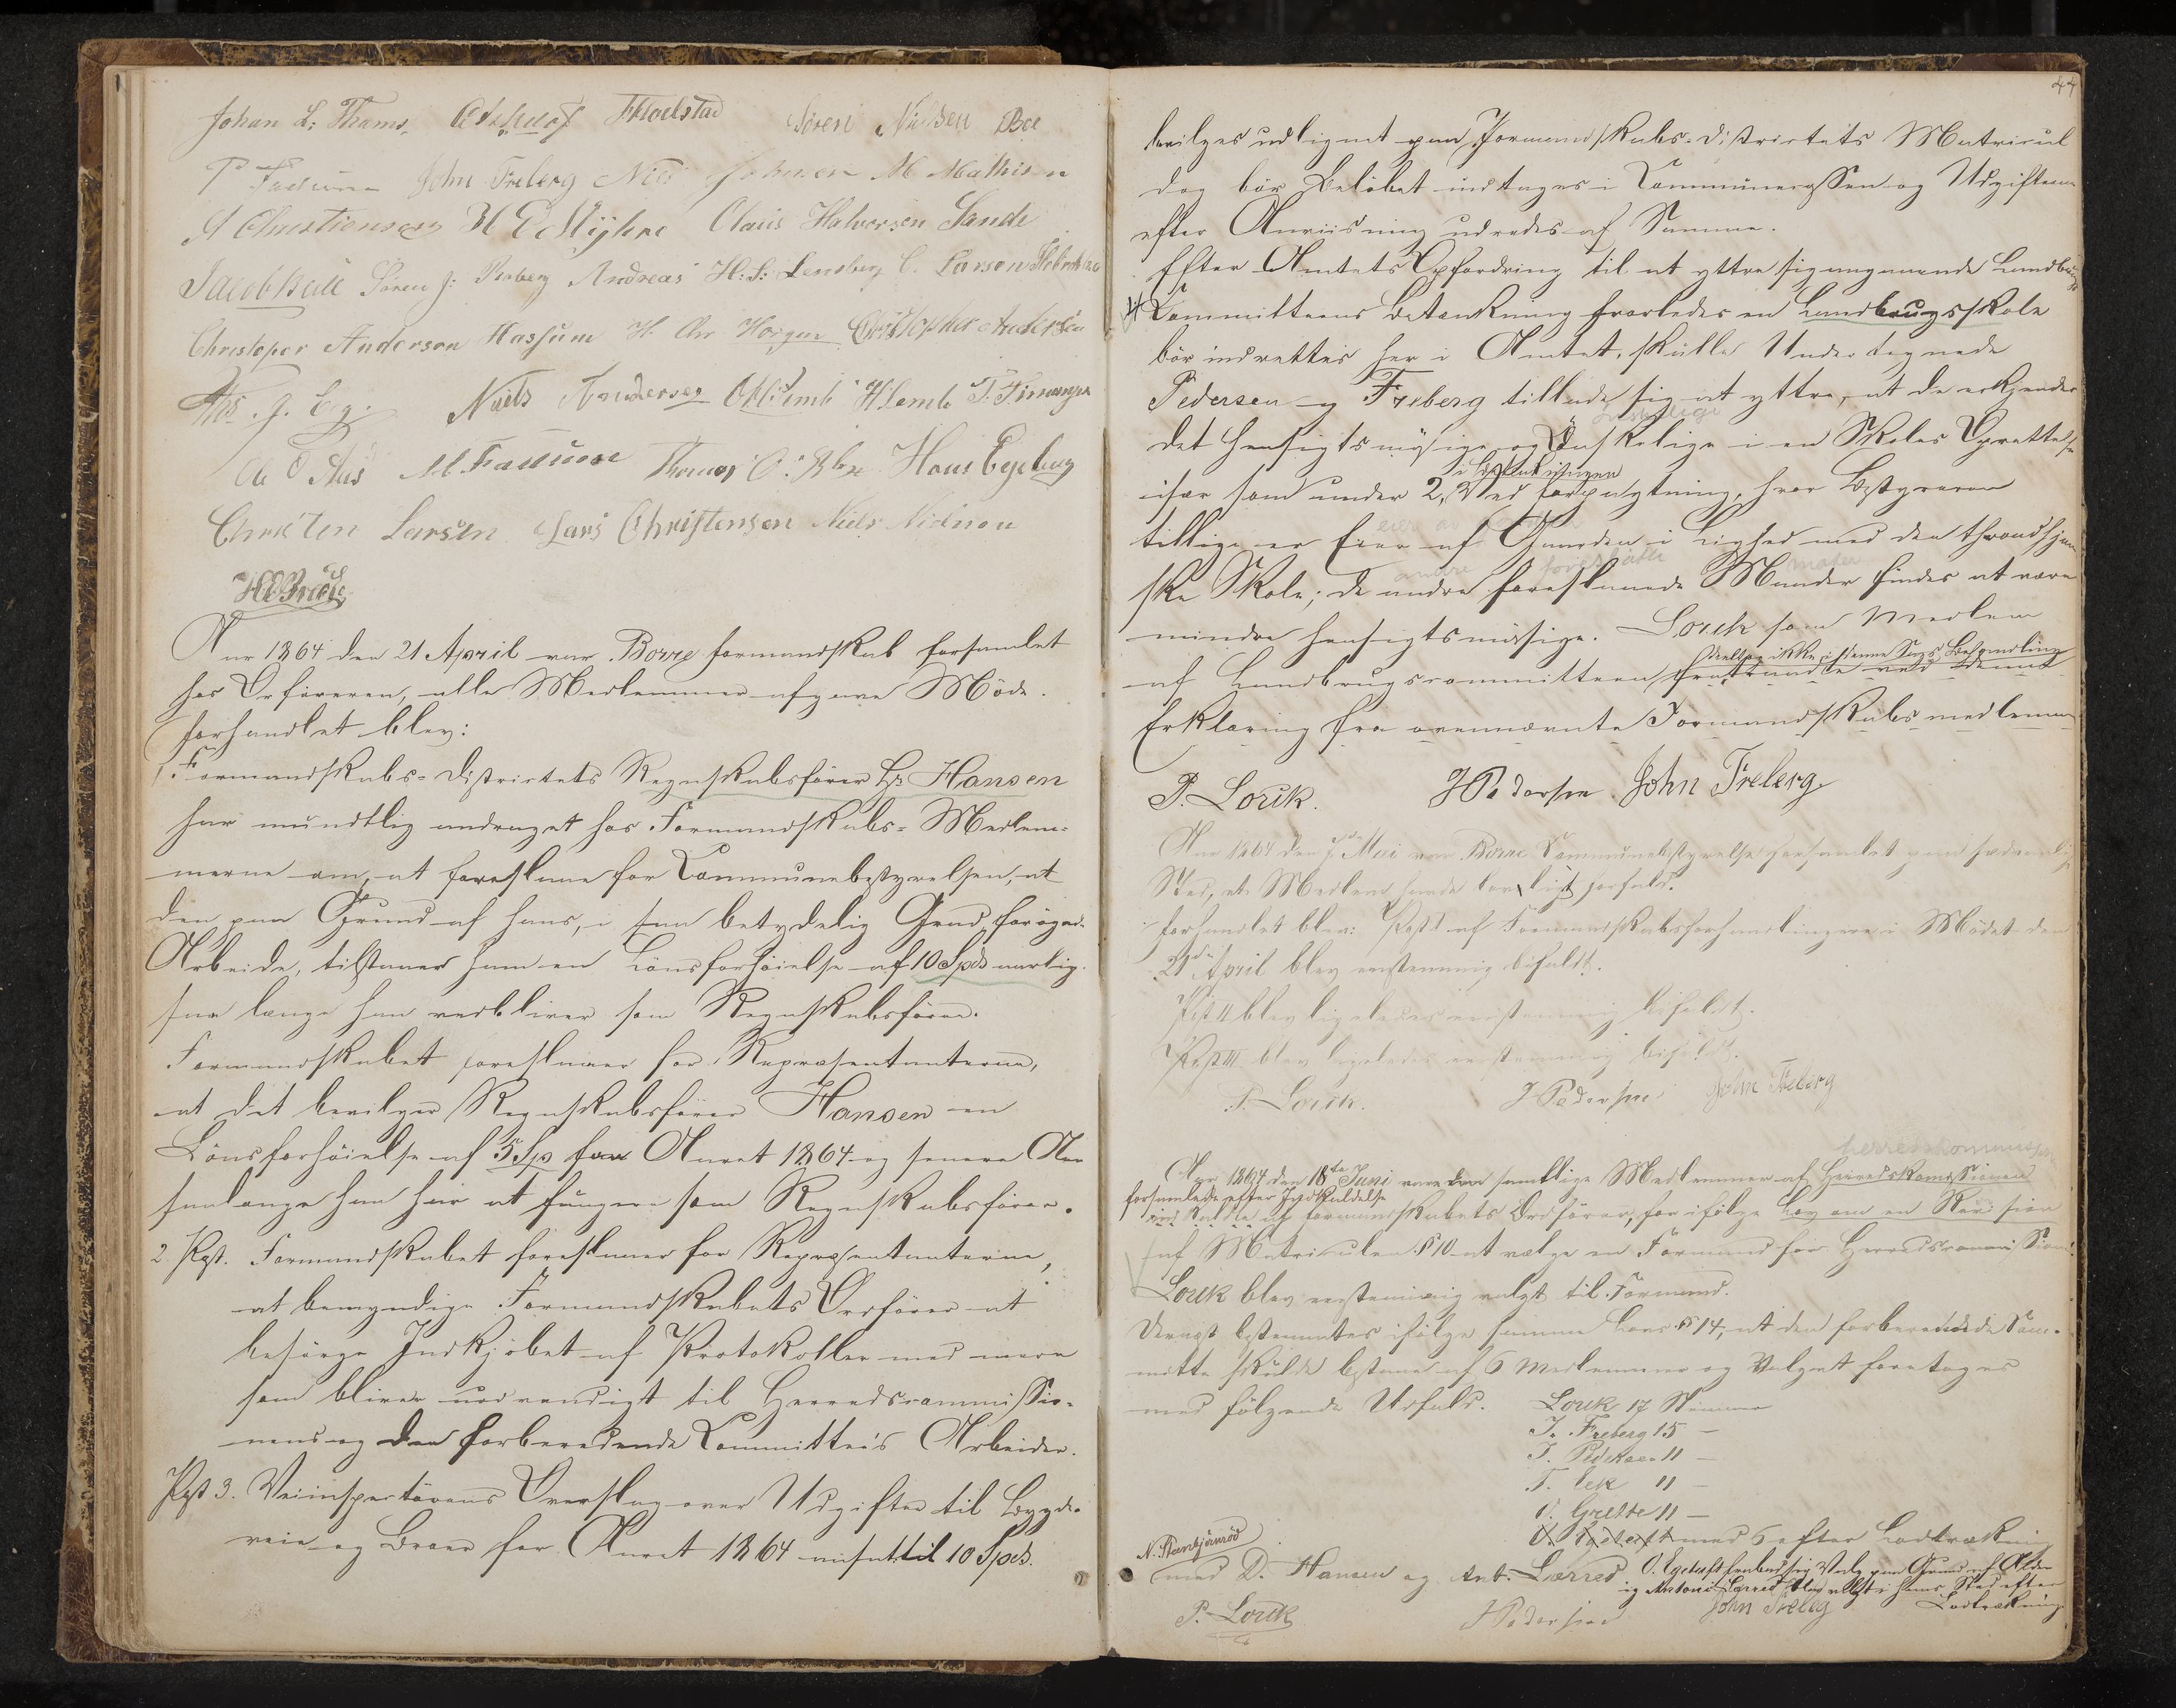 Johan L: Thams, FHoelstad Sören Nielsen Boe
P Fadum John Freberg Niels Johnsen M Mathisen
A Christiensen Claus Halvorsen Sande
Jacob Bull Sören J: Andreas H:S: C. Larson
Christoper Anderson Hassum H Chr Horgen Christopher Andersen
Niels Andersen
M. Fadum Thomas Hans Egeberg
Christen Larsen Lars Christensen Niels Nielsen
Aar 1864 den 21 April var Borre Formandskab forsamlet
hos Ordføreren, alle Medlemmer afgave Møde.
Forhandlet blev:
1. Formandskabs-Districtets Regnskabsfører Hr Hansen
har mundtlig andraget hos Formandskabs-Medlem-
merne om, at foreslaae for Communebestyrelsen, at
den paa Grund af hans, i saa betydelig Grad, forøgede
Arbeide, tilstaaes ham en Lønsforhøielse af 10 Spd aarlig
saa længe han vedbliver som Regnskabsfører.
Formandskabet foreslaaer for Repræsentanterne,
at det bevilger Regnskabsfører Hansen en
Lønsforhøielse af 5 Sp for Aaret 1864 og senere Aar
saalænge han har at fungere som Regnskabsfører.
2. Post. Formandskabet foreslaaer for Repræsentanterne,
at bemyndige Formandskabets Ordfører at
besørge Indkjøbet af Protokoller med mere
som bliver nødvendigt til Herredscommissio-
nens og den forberedende Committeis Arbeider.
Post 3. Veiinspectørens Overslag over Udgifter til Bygde-
veie og Broer for Aaret 1864 ansat til 10 Spd.
44
bevilges udlignet paa Formandskabs-Districtets Matricul
dog bør Beløbet indtages i Communecassen og Udgifterne
efter Anviisning udredes af Samme.
Efter Amtets Opfordring til at yttre sig angaaende Landbrugs
4 Committeens Betænkning hvorledes en Landbrugsskole
bør indrettes her i Amtet, skulle Undertegnede
Pedersen og Freberg tillade sig at yttre, at de erkjender
det Hensigtsmæsige og Ønskelige i en Skoles Oprettelse
i Betænkningen
især som under 2, Ved Forpagtning, hvor Bestyreren
tillige er Eier af Gaarden i Lighed med den throndhjem
ske Skole; de andre foreslaaede Maader findes at være
mindre hensigtsmæsige. Lorck som Medlem
deeltog ikke i denne Sags Behandling
af Landbrugscommitteen fratraadte ved denne
Erklæring fra ovennævnte Formandskabsmedlemmer
P. Lorck. J Pedersen John Freberg
Aar 1864 den 7de Mai var Borre Communebestyrelse forsamlet paa sædvanlig
Sted, et Medlem havde lovligt Forfald.
Forhandlet blev: Post 1 af Formandskabsforhandlingerne i Mødet den
21de April blev enstemmig bifaldt.
Post II blev ligeledes enstemmig bifaldt.
Post III blev ligeledes enstemmig bifaldt.
P. Lorck. J Pedersen John Freberg
Aar 1864 den 18te Juni vare samtlige Medlemmer af Herredskomissionen
forsamlede efter Indkaldelse
af Formandskabets Ordfører, for ifølge Lov om en Revision
af Matriculen § 10 at vælge en Formand for Herredscommission.
Lorck blev enstemmig valgt til Formand.
Dernæst bestemmtes ifølge samme Lovs § 14, at den forberedende Com-
mitte skulde bestaae af 6 Medlemmer og Valget foretoges
med følgende Udfald. Lorck 17 Stemmer
J. Freberg 15 –
J. Pedersen 11 –
F. Eek 11 –
O. Grette 11 –
O. Egetoft med 6 efter Lodtrækning
N. Stenbjørnrød
med D. Hansen og Ant. Lørred O. Egetoft frabad sig Valg paa Grund af Alder
og Antoni Lørred blev valgt i hans Sted efter
Lodtrækning.
P. Lorck J Pedersen John Freberg